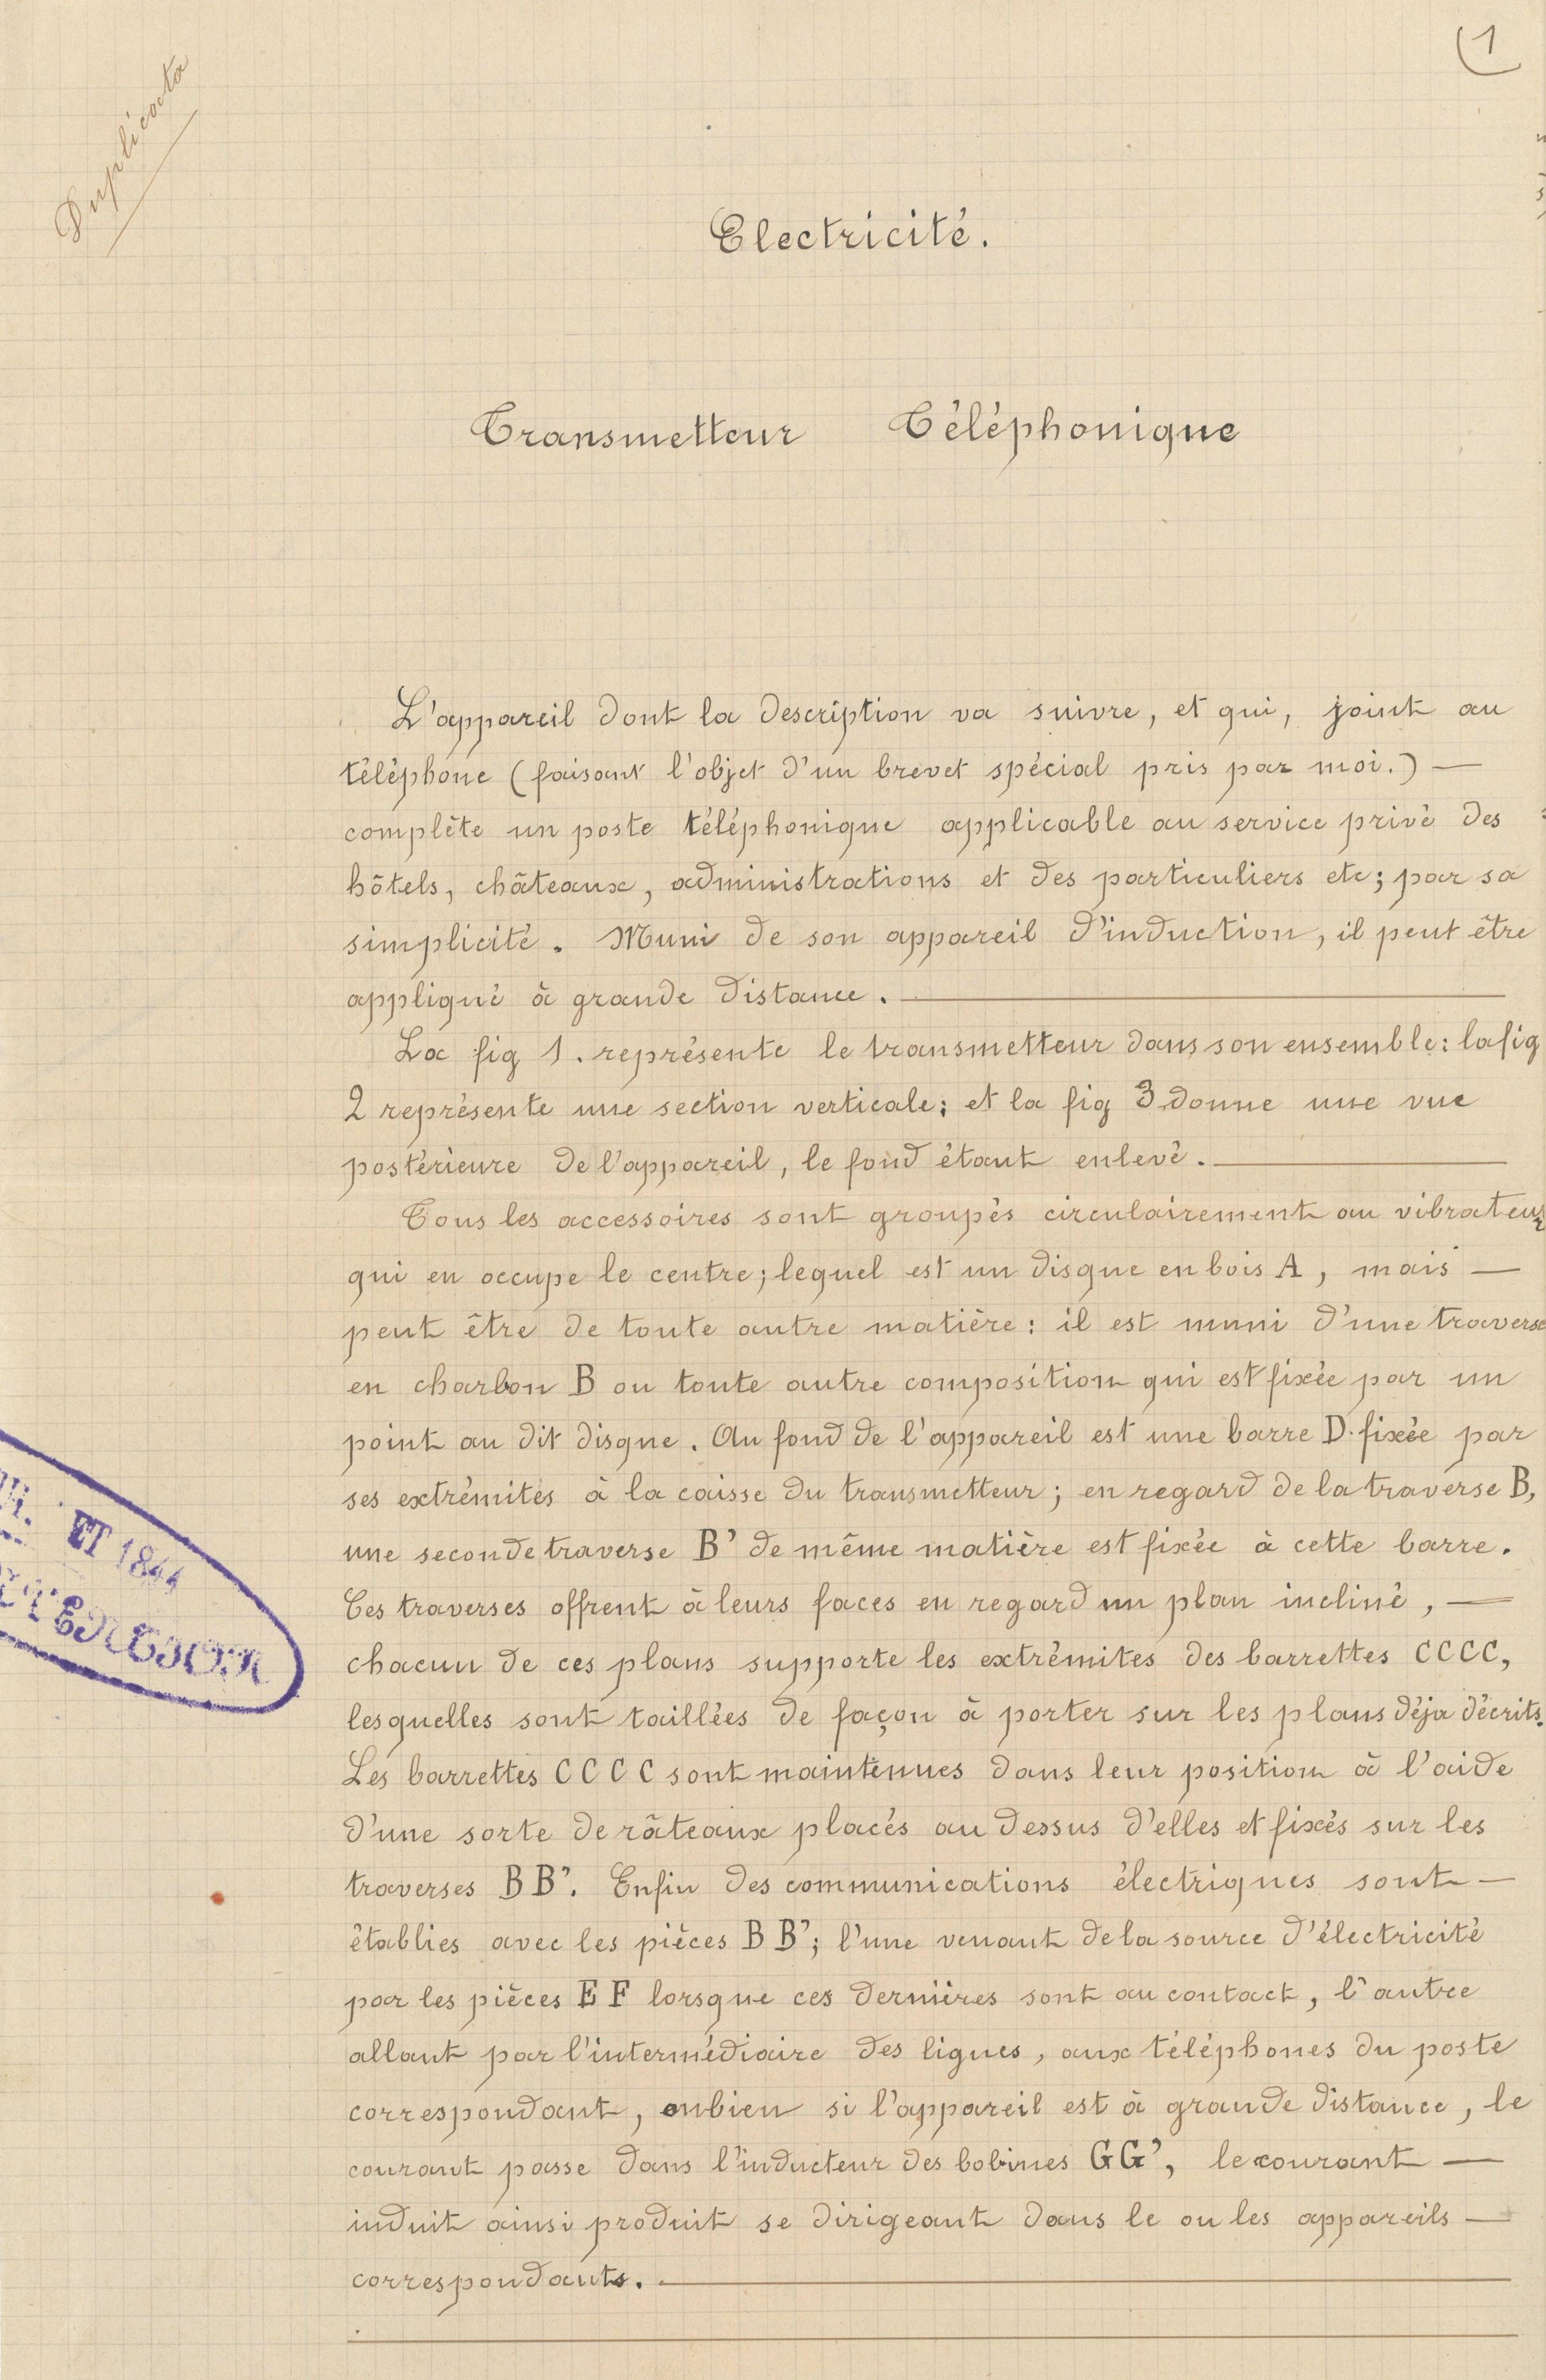 (1
Duplicata
Electricité.
Transmetteur Téléphonique
L'appareil dont la description va suivre, et qui, joint au
téléphone (faisant l'objet d'un brevet spécial pris par moi.) —
complète un poste téléphonique applicable au service privé des
hôtels, châteaux, administrations et des particuliers etc; par sa
simplicité. Muni de son appareil d'induction, il peut être
appliqué à grande distance. —
La fig 1. représente le transmetteur dans son ensemble: la fig
2 représente une section verticale; et la fig 3 donne une vue
postérieure de l'appareil, le fond étant enlevé. —
Tous les accessoires sont groupés circulairement au vibrateur
qui en occupe le centre; lequel est un disque en bois A, mais —
peut être de toute autre matière: il est muni d'une traverse
en charbon B ou toute autre composition qui est fixée par un
point au dit disque. Au fond de l'appareil est une barre D. fixée par
ses extrémités à la caisse du transmetteur; en regard de la traverse B,
une seconde traverse B' de même matière est fixée à cette barre.
Ces traverses offrent à leurs faces en regard un plan incliné, —
chacun de ces plans supporte les extrémités des barrettes CCCC,
lesquelles sont taillées de façon à porter sur les plans déja décrits.
Les barrettes CCCC sont maintenues dans leur position à l'aide
d'une sorte de râteaux placés au dessus d'elles et fixés sur les
traverses BB'. Enfin des communications électriques sont —
établies avec les pièces BB'; l'une venant de la source d'électricité
par les pièces EF lorsque ces dernières sont au contact, l'autre
allant par l'intermédiaire des lignes, aux téléphones du poste
correspondant, ou bien si l'appareil est à grande distance, le
courant passe dans l'inducteur des bobines GG', le courant —
induit ainsi produit se dirigeant dans le ou les appareils —
correspondants. —
ET 1844